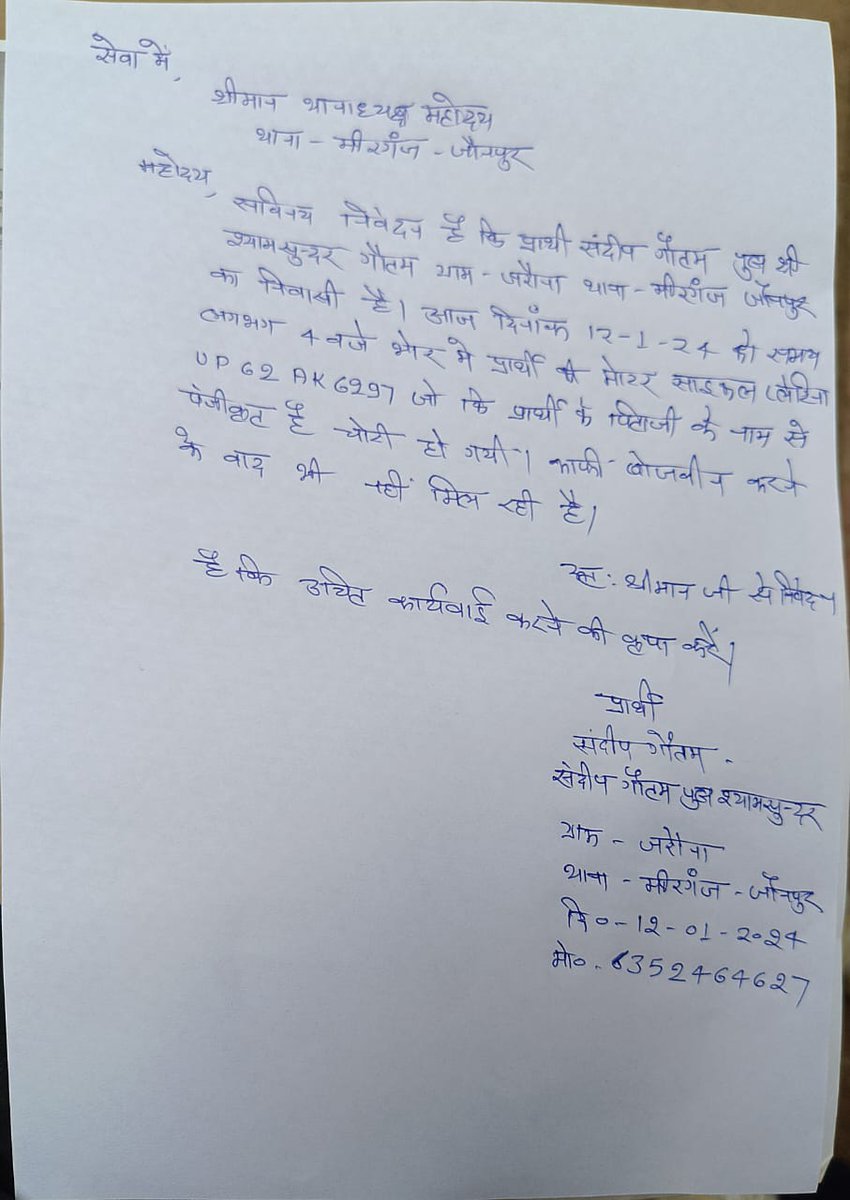 सेवा में,
श्रीमान थानाध्यक्ष महोदय
थाना - मीरगंज - जौनपुर
महोदय,
सविनय निवेदन है कि प्रार्थी संदीप गौतम पुत्र श्री
श्यामसुन्दर गौतम ग्राम - जरौना थाना - मीरगंज जौनपुर
का निवासी है। आज दिनांक 12-1-24 को समय
लगभग 4 बजे भोर मे प्रार्थी की मोटर साइकल (प्लेटिना
UP 62 AK 6297 जो कि प्रार्थी के पिताजी के नाम से
पंजीकृत है चोरी हो गयी। काफी खोजबीन करने
के बाद भी नहीं मिल रही है।
अतः श्रीमान जी से निवेदन
है कि उचित कार्यवाई करने की कृपा करें।
प्रार्थी
संदीप गौतम -
संदीप गौतम पुत्र श्यामसुन्दर
ग्राम - जरौना
थाना - मीरगंज - जौनपुर
दि० - 12 - 01 - 2024
मो० - 6352464627